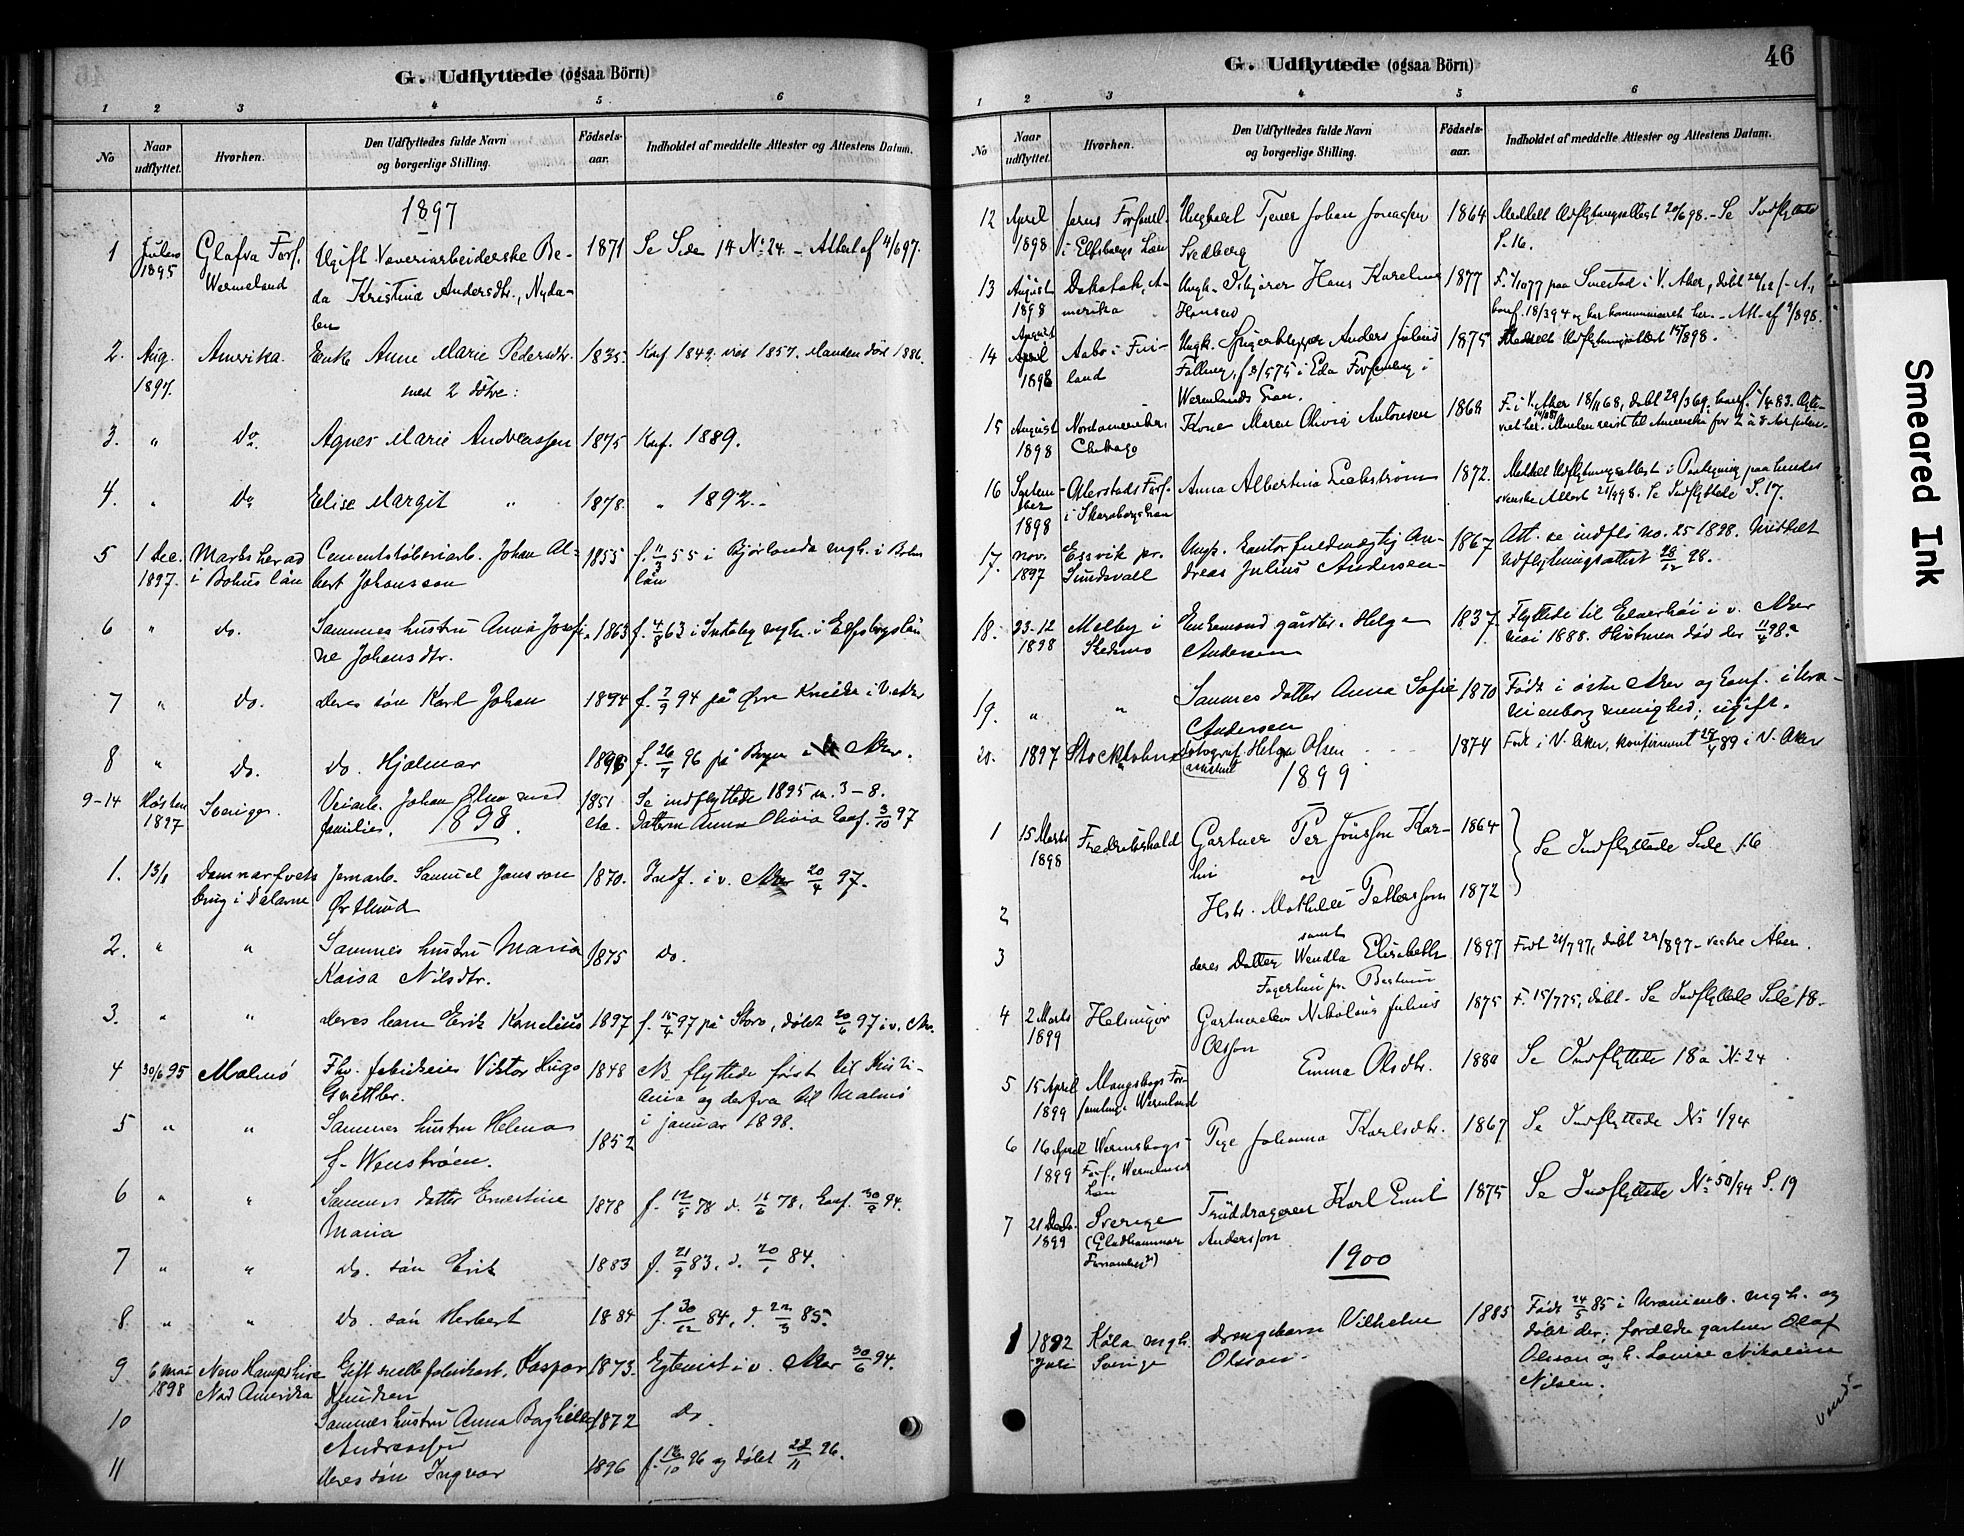 G. Udflyttede (ogsaa Börn)
1 2 3 4 5 6
No
Naar udflyttet.
Hvorhen.
Den Udflyttedes fulde Navn og borgerlige Stilling.
Födsels-aar.
Indholdet af meddelte Attester og Attestens Datum.
1897
1 Julen Glafva Forf. Ugift Væveriarbeiderske Be- 1871 Se Side 14 No 24. - Attest af 4/6 97.
1895 Wermeland da Kristina Andersdtr., Nyda-
len
2. Aug. Amerika. Enke Anne Marie Pedersdtr. 1835. Konf 1849. viet 1857. Manden død 1886.
1897. med 2 døtre:
3. " Do Agnes Marie Andreassen 1875 Konf. 1889.
4. " Do Elise Margit " 1878. " 1892.
5 1 Dec. Marksherad Cementstøberiarb. Johan Al- 1855 f. 11/3 55 i Bjørlanda mgh. i Bohus
1897. i Bohus län bert Johansson län
6 " do. Sammes hustru Anna Josefi- 1863 f. 4/8 63 i mgh. i Elfsborgslän
ne Johansdtr.
7 " do. deres søn Karl Johan 1894 f. 7/9 94 på Øvre i V. Aker
8 " do. do. Hjalmar 1896 f. 26/7 96 på i Aker.
9-14 Høsten Sverige. Veiarb. Johan med 1851 Se indflyttede 1895 n. 3-8.
1897 familie. 1898. etc. Datteren Anna Olivia konf. 3/10 97
1. 13/1 Domnarfvets Jernarb. Samuel Jansson 1870. Indf. i v. Aker 20/4 97.
brug i Dalarne Østlund
2. " " Sammes hustru Maria 1875 do.
Kaisa Nilsdtr.
3. " " deres barn Erik Kornelius 1897 f. 15/4 97 på Storo, døbt 20/6 97 i v. Ak.
4 30/6 95 Malmö Fhv. fabrikeier Viktor Hugo 1848 NB. flyttede først til Kristi-
ania og derfra til Malmö
5 " " Sammes hustru Helena 1852 i januar 1898.
f. Wenstrøm.
6 " " Sammes datter Ernestine 1878 f. 12/5 78 d. 16/6 78, konf. 30/9 94.
Maria
7 " " do. søn Erik 1883 f. 21/9 83, d. 20/1 84.
8. " " do. søn Herbert 1884 f. 30/12 84, d. 22/3 85.
9 6 mai New Hampshire Gift Kaspar 1873. Egteviet i v. Aker 30/6 94.
1898 Nord Amerika Knudsen
10 Sammes hustru Anna Borghild 1872 do.
Andreassen
11 deres søn Ingvar 1896 f. 16/10 96 og døbt 22/11 96.
G. Udflyttede (ogsaa Börn)
46
1 2 3 4 5 6
No
Naar udflyttet.
Hvorhen.
Den Udflyttedes fulde Navn og borgerlige Stilling.
Födsels-aar.
Indholdet af meddelte Attester og Attestens Datum.
12 April Forsaml. Ungkarl Tjener Johan Jonassen 1864 Meddelt Udflytningsattest 20/6 98. - Se Indflyttede
1898 i Elfsborgs Län Svedberg S. 16.
13 August Dakotah, A- Ungk. Hans Karelius 1877 F. 1/10 77 paa Smestad i V. Aker, døbt 26/12 s. A.,
1898 merika Hansen konf. 18/3 94 og har kommuniceret her. - Att. af 9/8 98.
14 August Aabo i Fin- Ungk. Anders Julius 1875 Meddelt Udflytningsattest 15/8 98.
April
1898 land Falling, f 2/5 75 i Eda Forsamling i
Wermlands Län.
15 August Nordamerika Kone Maren Olivia Antonsen 1868 F. i V. Aker 18/11 68, døbt 29/3 69, konf. 1/4 83. Egte-
1898 Chikago viet her. Manden reist til Amerika for 2 à 3 Aar siden.
16 Septem- Forf. Anna Albertina Lickström 1872. Meddelt Udflytningsattest i Paategning paa hendes
ber
1898 i Skaraborgs Län svenske Attest 21/9 98. Se Indflyttede S. 17.
17. nov. Essvik pr. Ungk. kontorfuldmægtig An- 1867 Att. se indfl. no. 25 1898. Meddelt
1897 Sundsvall dreas Julius Andersen Udflytningsattest 28/12 98.
18. 23-12 Melby i Enkemand gårdbr. Helge 1837. Flyttede til Elverhöi i v. Aker
1898 Skedsmo Andersen mai 1888. Hustruen død der 11/4 98.
19. " " Sammes datter Anna Sofie 1870 Født i østre Aker og konf. i Ura-
Andersen nienborg menighed; ugift.
20. 1897 Stockholm Fotograf Helga Olsen 1874 Født i V. Aker, konfirmeret 29/4 89 i V. Aker
assistent
1899
1 15 Marts Fredrikshald Gartner Per Jönsson Kar- 1864
1898 lin og Se Indflyttede Side 16
2 Hstr. Mathilde Pettersson 1872
samt
3 deres Datter Wendla Elisabeth 1897 Født 21/7 97, døbt 29/8 97 - vestre Aker.
pr. Bestum
4 2 Marts Helsingør Gartnerelev Nikolaus Julius 1875 F. 15/7 75, døbt - Se Indflyttede Side 18.
1899 Olsson
5 15 April Mangskogs For- Emma Olsdtr. 1880 Se Indflyttede 18a No 24
1899 samling Wermland
6 16 April Pige Johanna Karlsdtr. 1867 Se Indflyttede No 1/94
1899 Forf., Wermlands
Län
7 21 Decbr. Sverige Traaddrageren Karl Emil 1875 Se Indflyttede No 50/94 S. 19
1899 (Gladhammar Andersson
1900
1 1892 Köla mgh. drengebarn Vilhelm 1885 Født 24/5 85 i Uranienb. mgh. og
Juli Sverige Olsson. døbt der; forældre gartner Olaf
Olsson og h. Lovise Nikoline
Nilsen.
vend!
Smeared Ink